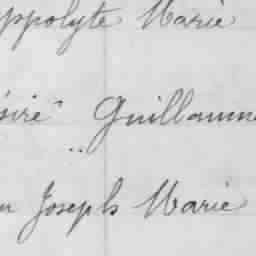 ppolyte Marie
Guillaume
Joseph Marie